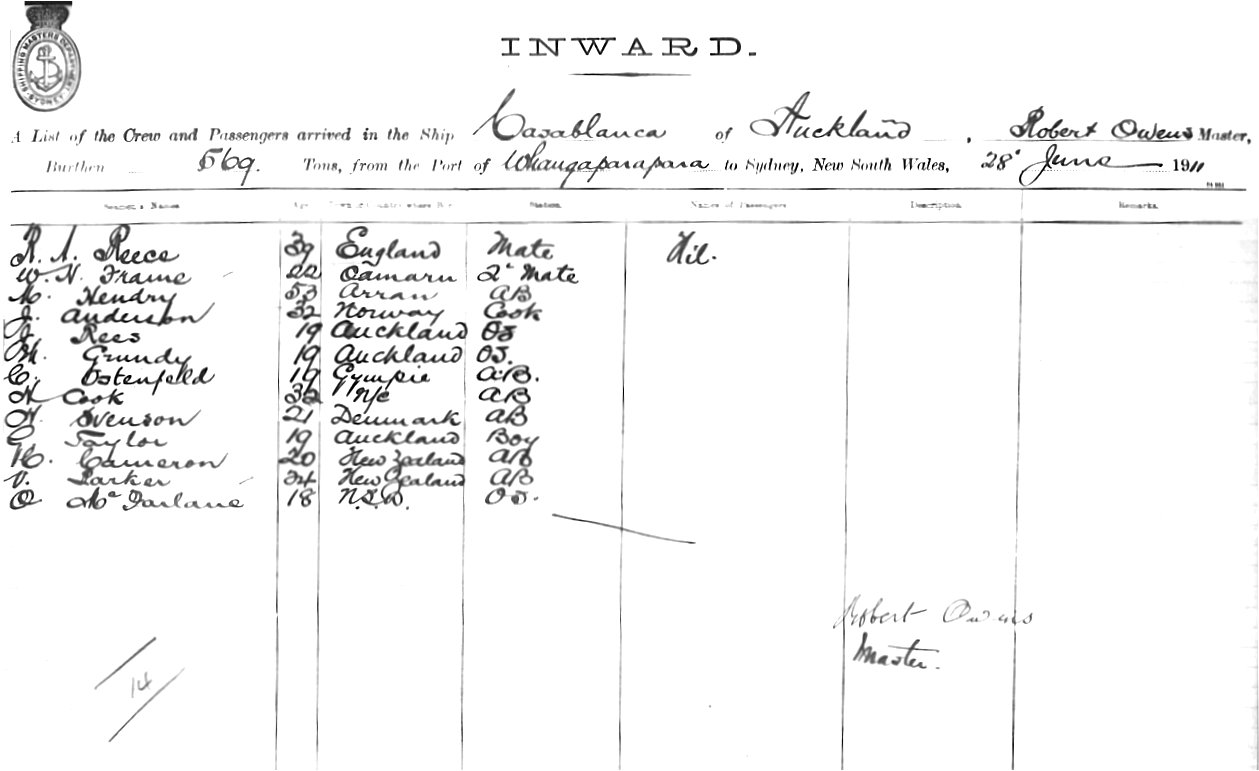 SHIPPING MASTERS DEPARTMENT SYDNEY
INWARD.
A List of the Crew and Passengers arrived in the Ship Casablanca of Auckland, Robert Owens Master,
Burthen 569. Tons, from the Port of Whangaparapara to Sydney, New South Wales, 28" June 1911
Seaman's Names Age Station. Names of Passengers. Description. Remarks.
R. A. Reece 39 England Mate Nil.
W. H. Frame 22 Oamaru 2" Mate
M. Hendry 53 Arran AB
J. Anderson 32 Norway Cook
J. Rees 19 Auckland OS
M. Grundy 19 Auckland OS.
C. Ostenfeld 19 Gympie A.B.
H Cook 32 N/c AB
H. Svenson 21 Denmark AB
Taylor 19 Auckland Boy
H. Cameron 20 New Zealand AB
V. Parker 24 New Zealand AB
O McFarlane 18 N.S.W. OS.
Robert Owens
Master.
14